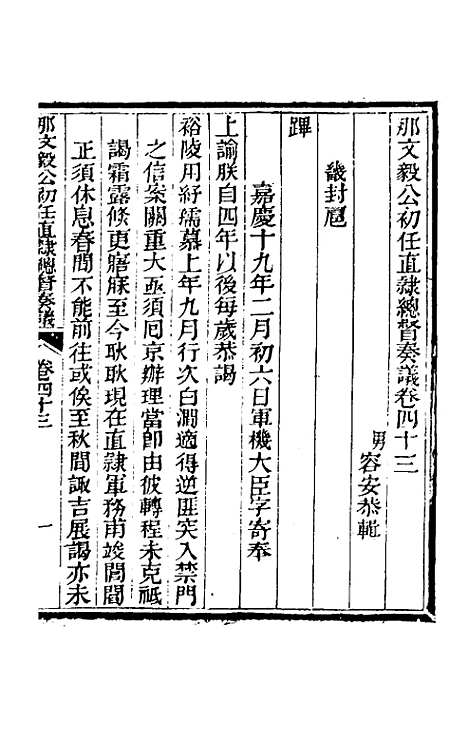 那文毅公初任直隸總督奏議卷四十三
男容安恭輯
畿封扈
蹕
嘉慶十九年二月初六日軍機大臣字寄奉
上諭朕自四年以後每歲恭謁
裕陵用紓孺慕上年九月行次白澗適得逆匪突入禁門
之信案關重大亟須囘京辦理當卽由彼轉程未克祗
謁霜露倐更寤寐至今耿耿現在直隷軍務甫竣閭閻
正須休息春間不能前往或俟至秋間諏吉展謁亦未
那文毅公初任直隸總督奏議
卷四十三
一